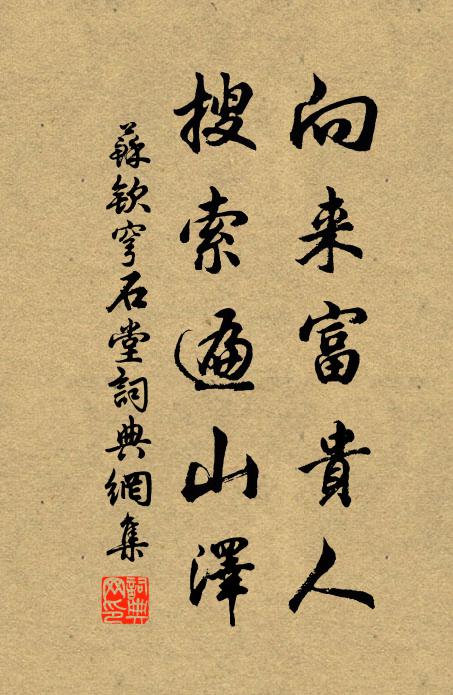 向来富貴人
搜索遍山澤
蘇欽穹石堂詞典網集
詞典網印